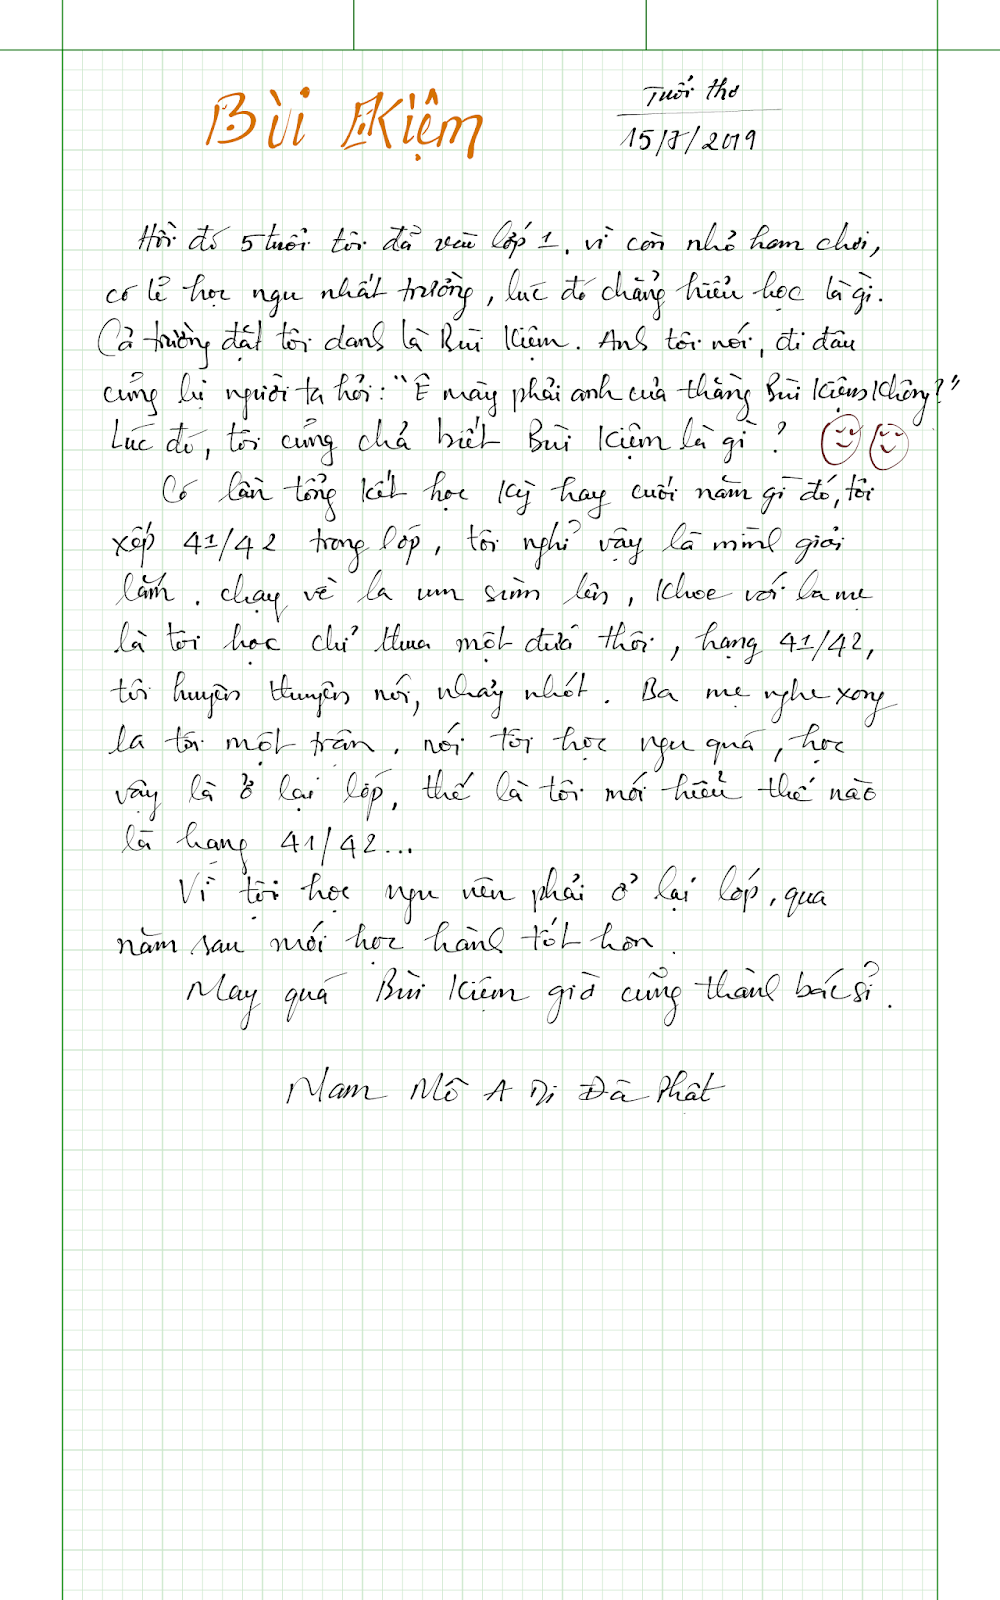 Bùi Kiệm
Tuổi thơ
15/7/2019
Hồi đó 5 tuổi tôi đã vào lớp 1, vì còn nhỏ ham chơi,
có lẽ học ngu nhất trường, lúc đó chẳng hiểu học là gì.
Cả trường đặt tôi danh là Bùi Kiệm. Anh tôi nói, đi đâu
cũng bị người ta hỏi: "Ê mày phải anh của thằng Bùi Kiệm không?"
Lúc đó, tôi cũng chả biết Bùi Kiệm là gì?
Có lần tổng kết học kỳ hay cuối năm gì đó, tôi
xếp 41/42 trong lớp, tôi nghĩ vậy là mình giỏi
lắm. chạy về la um sùm lên, khoe với ba mẹ
là tôi học chỉ thua một đứa thôi, hạng 41/42,
tôi huyên thuyên nói, nhảy nhót. Ba mẹ nghe xong
la tôi một trận, nói tôi học ngu quá, học
vậy là ở lại lớp, thế là tôi mới hiểu thế nào
là hạng 41/42...
Vì tôi học ngu nên phải ở lại lớp, qua
năm sau mới học hành tốt hơn.
May quá Bùi Kiệm giờ cũng thành bác sĩ.
Nam Mô A Di Đà Phật